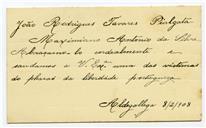 João Rodrigues Tavares
Maximiano Antonio da Silva
cordealmente e
saudamos a V. Exª uma das victimas
da liberdade portugueza
Aldegallega 8/2/908